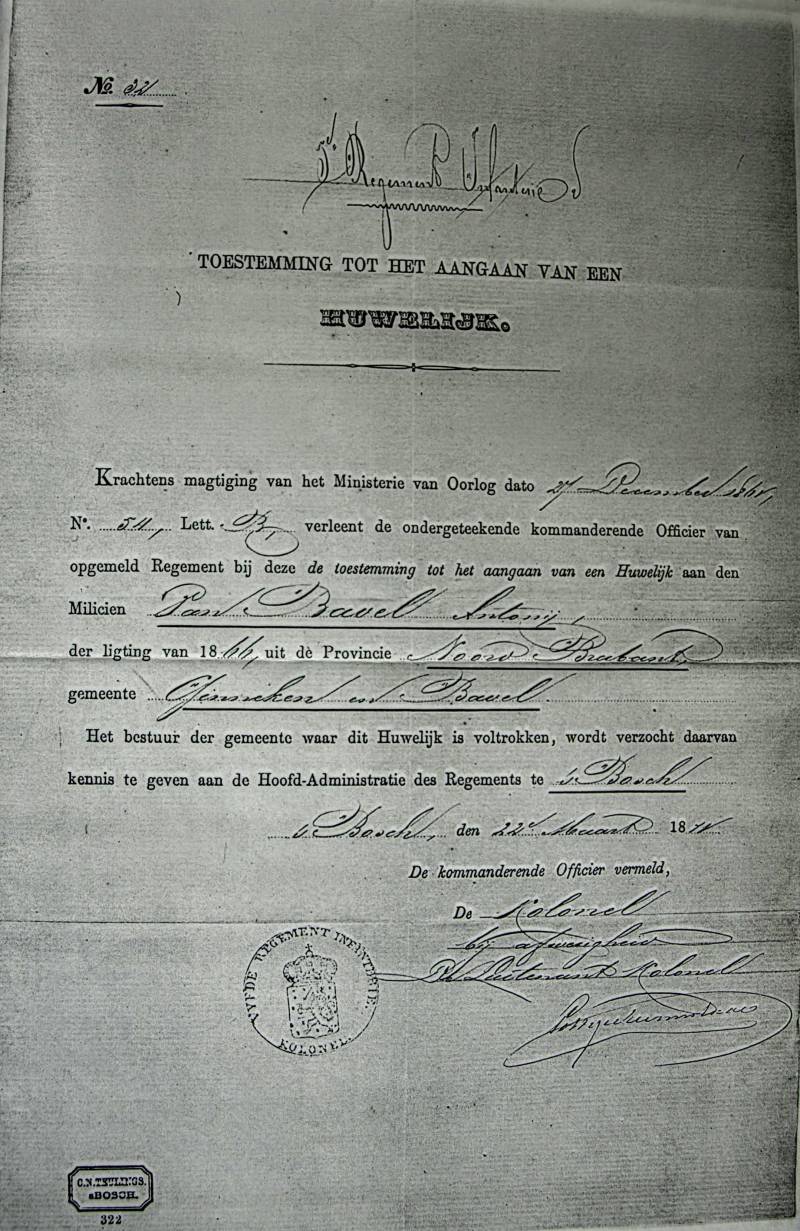 No. 32
5de Regement Infanterie
TOESTEMMING TOT HET AANGAAN VAN EEN
HUWELIJK.
Krachtens magtiging van het Ministerie van Oorlog dato 27 December
No. 511, Lett. B, verleent de ondergeteekende kommanderende Officier van
opgemeld Regement bij deze de toestemming tot het aangaan van een Huwelijk aan den
Milicien Van Bavel Antonij,
der ligting van 1866, uit de Provincie Noord Brabant,
gemeente Ginneken en Bavel.
Het bestuur der gemeente waar dit Huwelijk is voltrokken, wordt verzocht daarvan
kennis te geven aan de Hoofd-Administratie des Regements te 's Bosch
's Bosch, den 22e Maart 18
De kommanderende Officier vermeld,
De Kolonel
bij afwezigheid
De Luitenant Kolonel
VYFDE REGEMENT INFANTERIE.
KOLONEL.
C.N.TEULINGS.
sBOSCH.
322